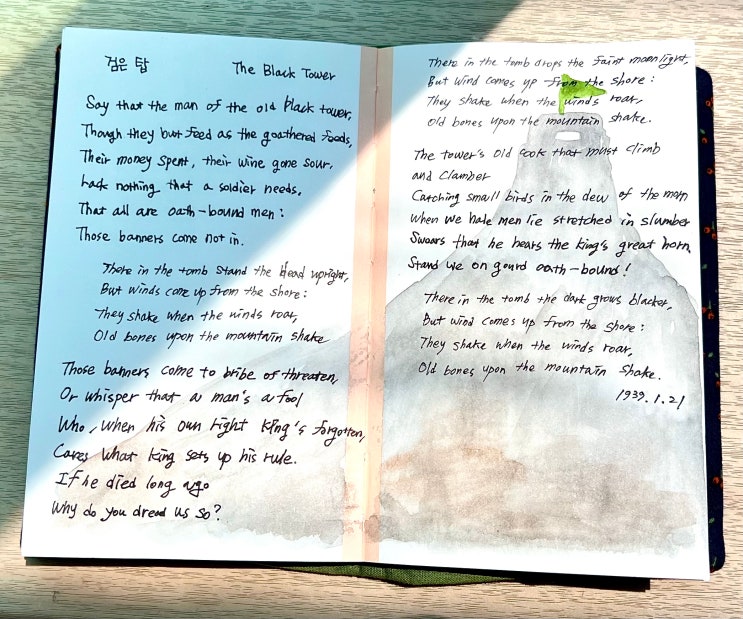 검은 탑
The Black Tower
Say that the man of the old black tower,
Though they but feed as the goathered feeds,
Their money spent, their wine gone sour,
Lack nothing that a soldier needs,
That all are oath-bound men:
Those banners come not in.
There in the tomb stand the dead upright,
But winds come up from the shore:
They shake when the winds roar,
Old bones upon the mountain shake
Those banners come to bribe of threaten,
Or whisper that a man's a fool
Who, when his own right king's forgotten,
Cares what king sets up his rule.
If he died long ago
Why do you dread us so?
There in the tomb drops the faint moonlight,
But wind comes up from the shore:
They shake when the winds roar,
Old bones upon the mountain shake.
The tower's old cook that must climb
and clamber
Catching small birds in the dew of the morn
When we hale men lie stretched in slumber
Swears that he hears the king's great horn.
Stand we on guard oath-bound!
There in the tomb the dark grows blacker,
But wind comes up from the shore:
They shake when the winds roar,
Old bones upon the mountain shake.
1939.1.21